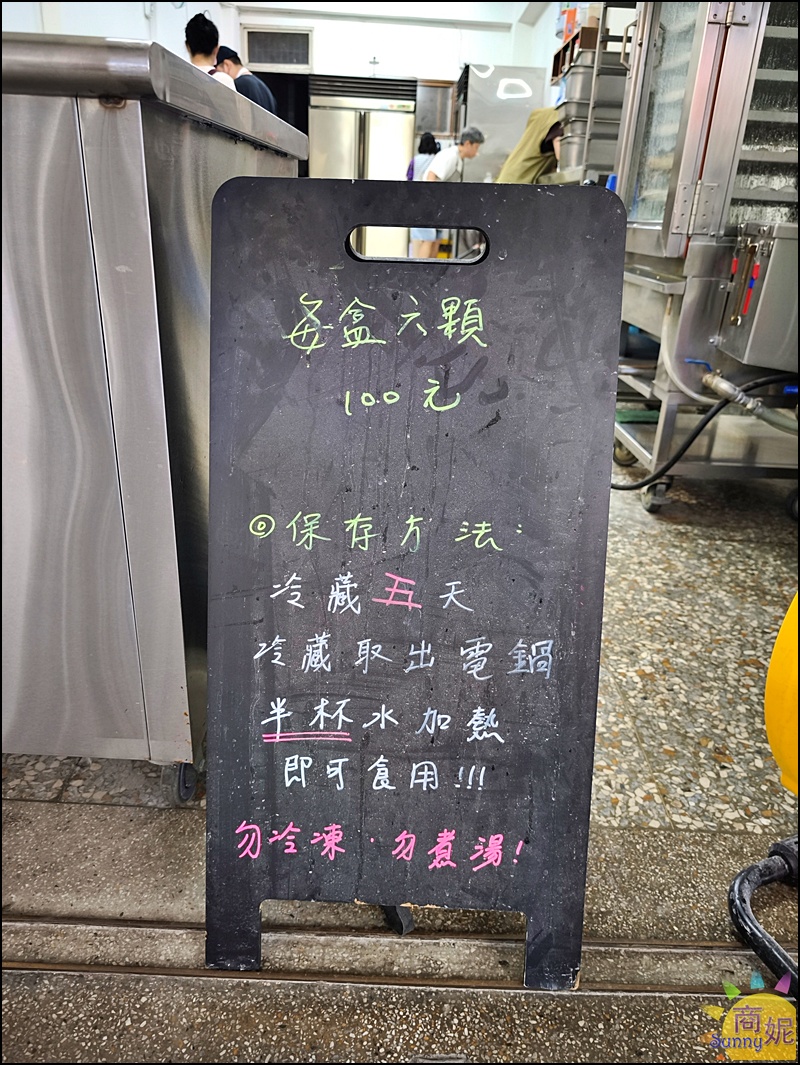 每盒六顆
100元
◎保存方法:
冷藏五天
冷藏取出電鍋
半杯水加熱
即可食用!!!
勿冷凍·勿煮湯!
商妮
Sunny